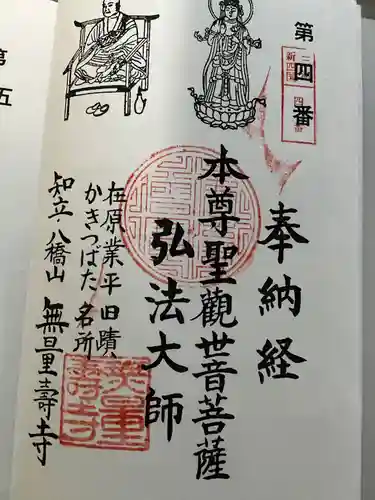 第四番
三
新四国
四番
奉納経
本尊聖觀世音菩薩
弘法大師
在原業平旧蹟
かきつばた名所
知立八橋山
無量壽寺
無量壽寺
第五